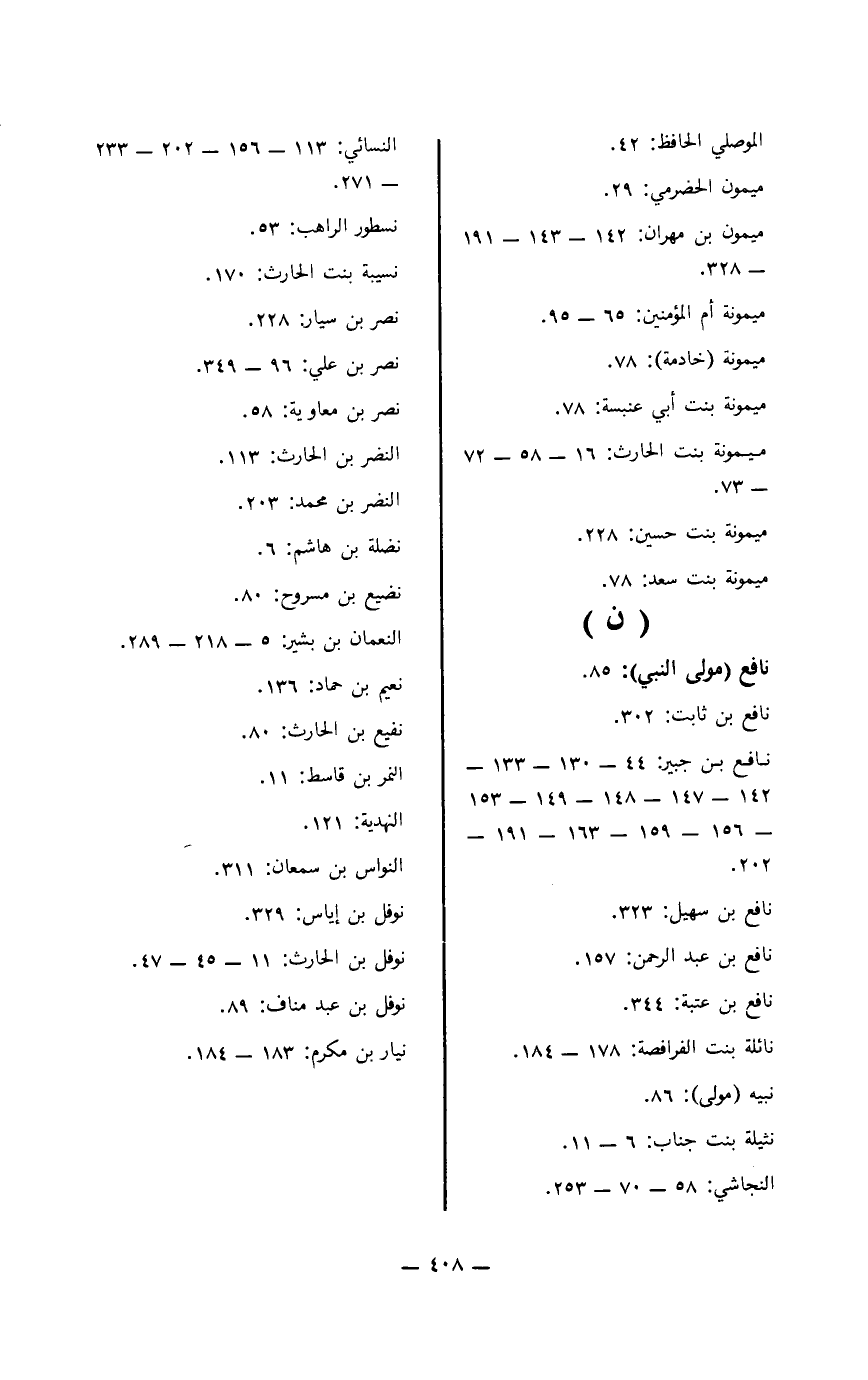 الموصلي الحافظ: ٤٢.
ميمون الحضرمي: ٢٩.
ميمون بن مهران: ١٤٢ — ١٤٣ — ١٩١
— ٣٢٨.
ميمونة أم المؤمنين: ٦٥ — ٩٥.
ميمونة (خادمة): ٧٨.
ميمونة بنت أبي عنبسة: ٧٨.
ميمونة بنت الحارث: ١٦ — ٥٨ — ٧٢
— ٧٣.
ميمونة بنت حسين: ٢٢٨.
ميمونة بنت سعد: ٧٨.
( ن )
نافع (مولى النبي): ٨٥.
نافع بن ثابت: ٣٠٢.
نافع بن جبير: ٤٤ — ١٣٠ — ١٣٣ —
١٤٢ — ١٤٧ — ١٤٨ — ١٤٩ — ١٥٣
— ١٥٦ — ١٥٩ — ١٦٣ — ١٩١ —
٢٠٢.
نافع بن سهيل: ٣٢٣.
نافع بن عبد الرحمن: ١٥٧.
نافع بن عتبة: ٣٤٤.
نائلة بنت الفرافصة: ١٧٨ — ١٨٤.
نبيه (مولى): ٨٦.
نثيلة بنت جناب: ٦ — ١١.
النجاشي: ٥٨ — ٧٠ — ٢٥٣.
النسائي: ١١٣ — ١٥٦ — ٢٠٢ — ٢٣٣
— ٢٧١.
نسطور الراهب: ٥٣.
نسيبة بنت الحارث: ١٧٠.
نصر بن سيار: ٢٢٨.
نصر بن علي: ٩٦ — ٣٤٩.
نصر بن معاوية: ٥٨.
النضر بن الحارث: ١١٣.
النضر بن محمد: ٢٠٣.
نضلة بن هاشم: ٦.
نضيع بن مسروح: ٨٠.
النعمان بن بشير: ٥ — ٢١٨ — ٢٨٩.
نعيم بن حماد: ١٣٦.
نفيع بن الحارث: ٨٠.
النمر بن قاسط: ١١.
النهدية: ١٢١.
النواس بن سمعان: ٣١١.
نوفل بن إياس: ٣٢٩.
نوفل بن الحارث: ١١ — ٤٥ — ٤٧.
نوفل بن عبد مناف: ٨٩.
نيار بن مكرم: ١٨٣ — ١٨٤.
— ٤٠٨ —